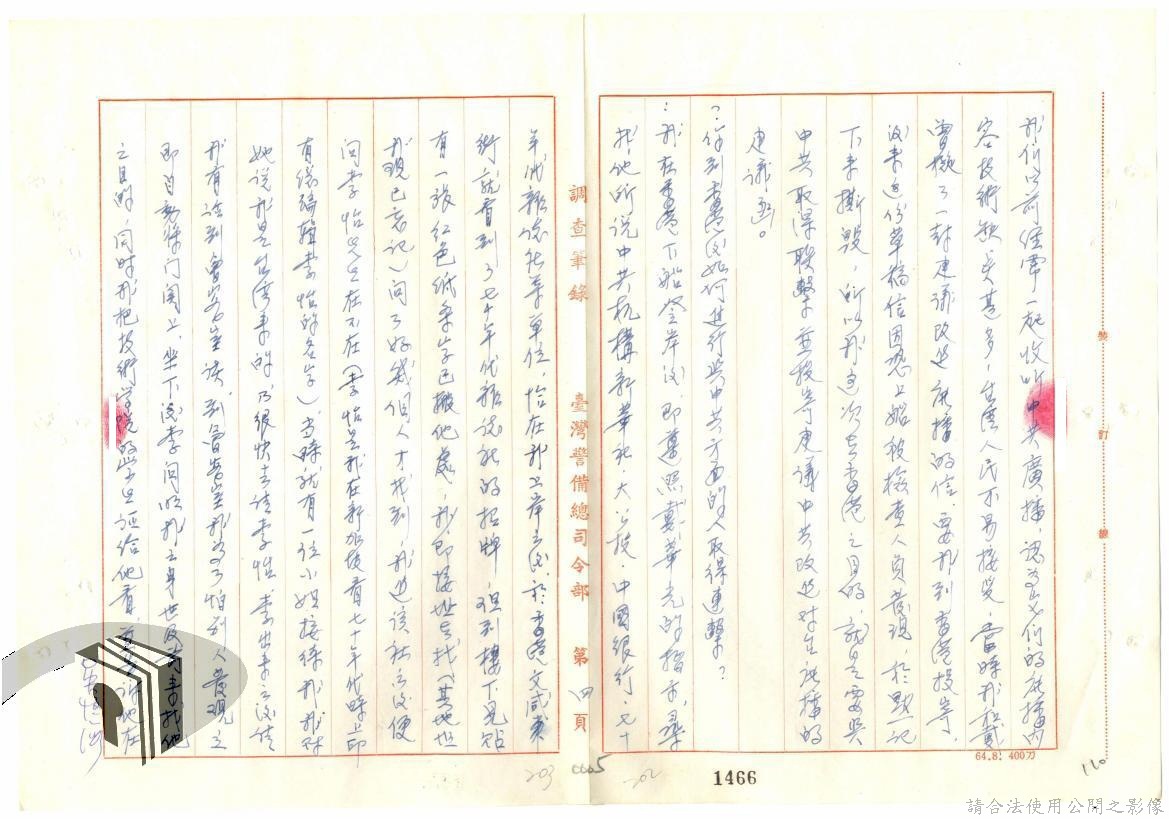 我們以前經常一起收聽中共廣播，認為他們的廣播內
容技術缺失甚多，台灣人民不易接受，當時我和戴
曾擬了一封建議改進廣播的信，要我到香港投寄，
後來這份草稿信因恐上船被檢查人員發現，於默記
下來撕毀，所以我這次去香港之目的，就是要與
中共取得聯繫，並投寄建議中共改進對台廣播的
建議函。
？你到香港後如何進行與中共方面的人取得連繫？
：我在香港下船登岸後，即遵照戴華光的指示，尋
找他所說中共機構新華社、大公報、中國銀行、七十
年代雜誌社等單位，恰在我上岸之後於香港文咸東
街就看到了七十年代雜誌社的招牌，但到樓下見貼
有一張紅色紙条字已搬他處，我即按址去找（其地址
我現已忘記）問了好幾個人才找到，我進該社之後便
問李怡先生在不在（李怡是我在新加坡看七十年代時上印
有總編輯李怡的名字）當時就有一位小姐接待我，我對
她說我是台灣來的，乃很快去請李怡，李出來之後請
我有話到會客室談，到會客室我為了怕別人發現之
即自動將門關上，坐下後李問明我之身世及前來找他
之目的，同時我把技術學院的學生證給他看，並告訴他在
調查筆錄 臺灣警備總司令部 第四頁
裝訂線
64.8. 400刀
1466
0005
203
202
110
請合法使用公開之影像